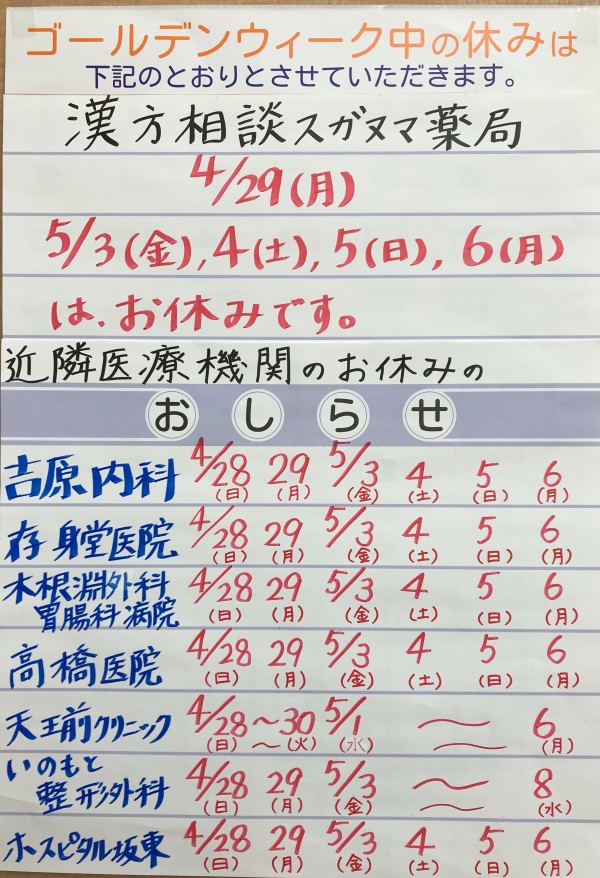 ゴールデンウィーク中の休みは
下記のとおりとさせていただきます。
漢方相談スガヌマ薬局
4/29(月)
5/3(金),4(土),5(日),6(月)
は、お休みです。
近隣医療機関のお休みの
おしらせ
吉原内科 4/28(日) 29(月) 5/3(金) 4(土) 5(日) 6(月)
存身堂医院 4/28(日) 29(月) 5/3(金) 4(土) 5(日) 6(月)
木根淵外科胃腸科病院 4/28(日) 29(月) 5/3(金) 4(土) 5(日) 6(月)
高橋医院 4/28(日) 29(月) 5/3(金) 4(土) 5(日) 6(月)
天王前クリニック 4/28(日)〜30(火) 5/1(水)〜6(月)
いのもと整形外科 4/28(日) 29(月) 5/3(金)〜8(水)
ホスピタル坂東 4/28(日) 29(月) 5/3(金) 4(土) 5(日) 6(月)